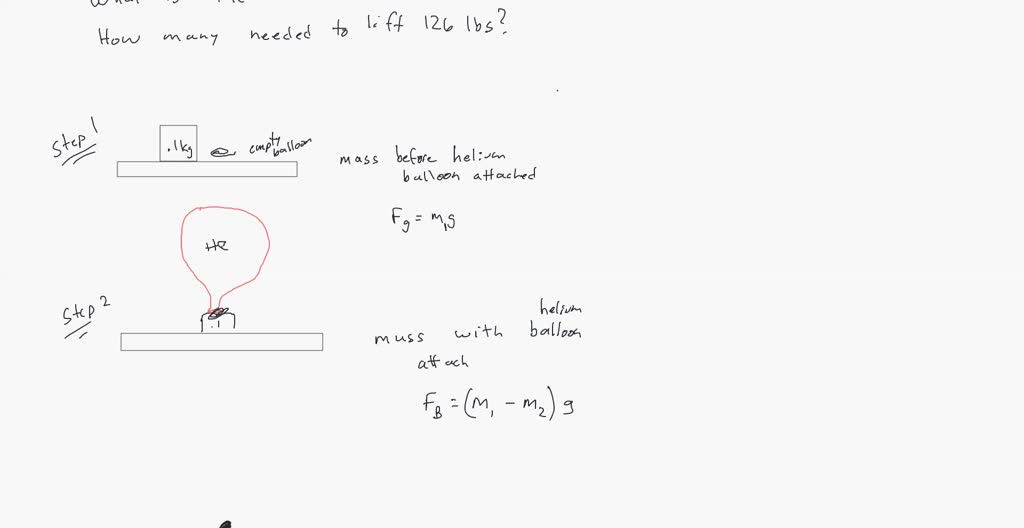 How many needed to lift 126 lbs?
Step 1
.1kg
empty balloon
mass before helium
balloon attached
Fg = m₁g
He
Step 2
.1
helium
muss with balloon
attach
F_B = (m₁ - m₂) g